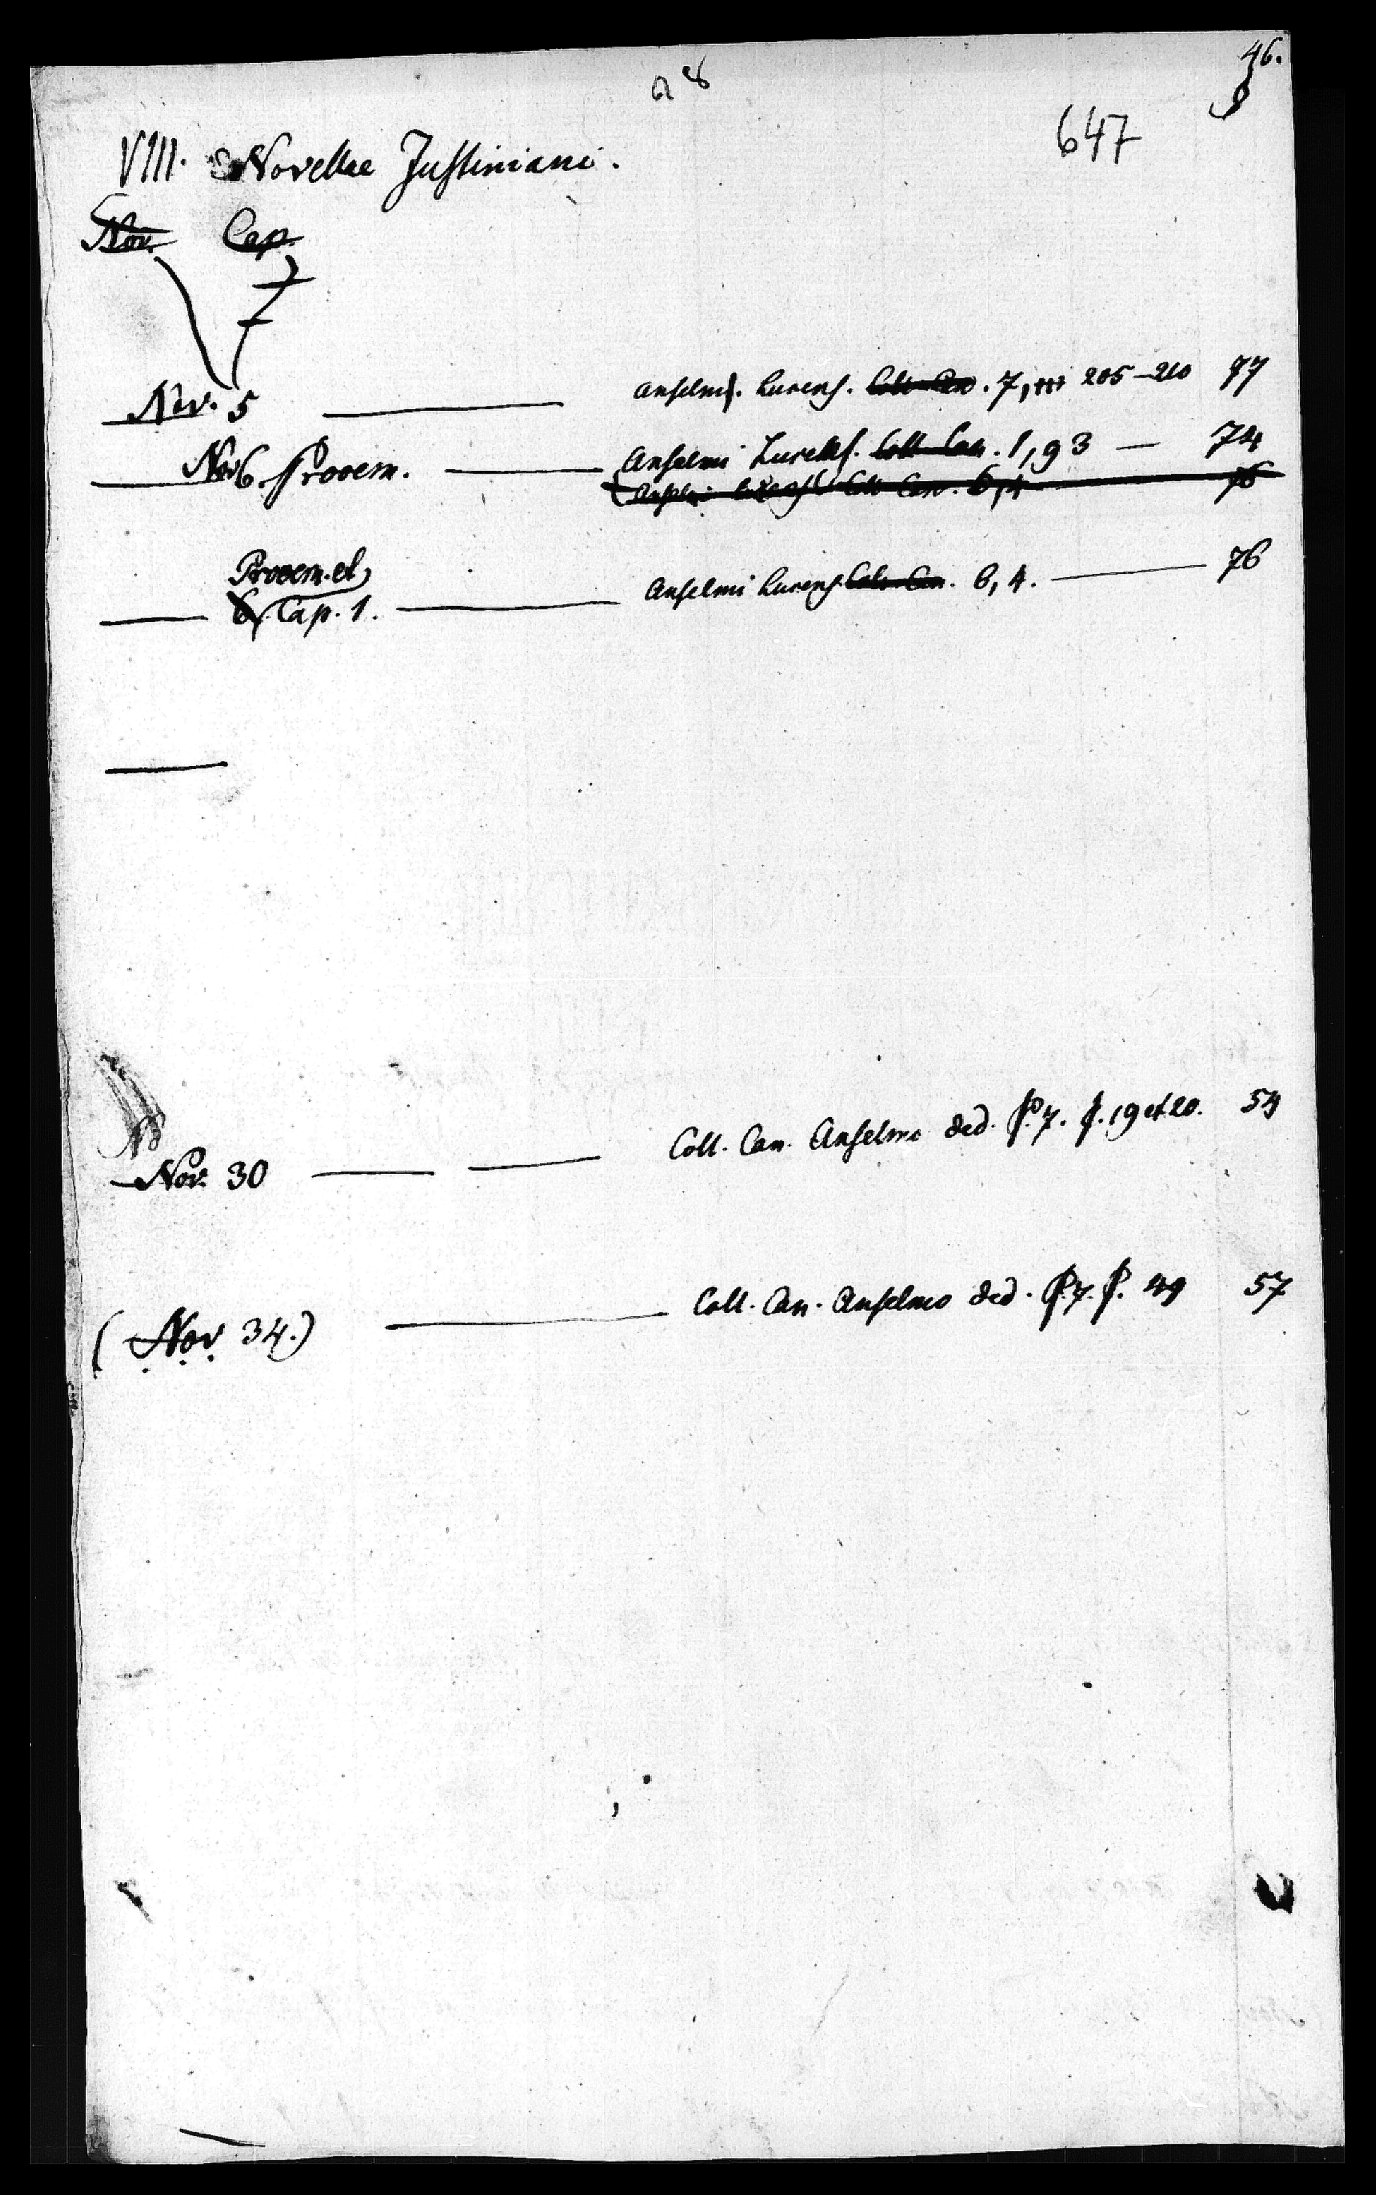 46.
647
VIII. Novellae Justiniani.
Nov. Cap.
Nov. 5 Anselmi. Lucens. Coll. Can. 7, 205-210 77
Nov 6 Prooem. Anselmi Lucens. Coll. Can. 1,93 — 74
Anselmi Lucens. Coll. Can. 6,4 76
Prooem. et
6. Cap. 1. Anselmi Lucens. Coll. Can. 6, 4. 76
Nov. 30 Coll. Can. Anselmo ded. P. 7. 19 et 20. 54
(Nov 34.) Coll. Can. Anselmo ded. P. 7. 49 57